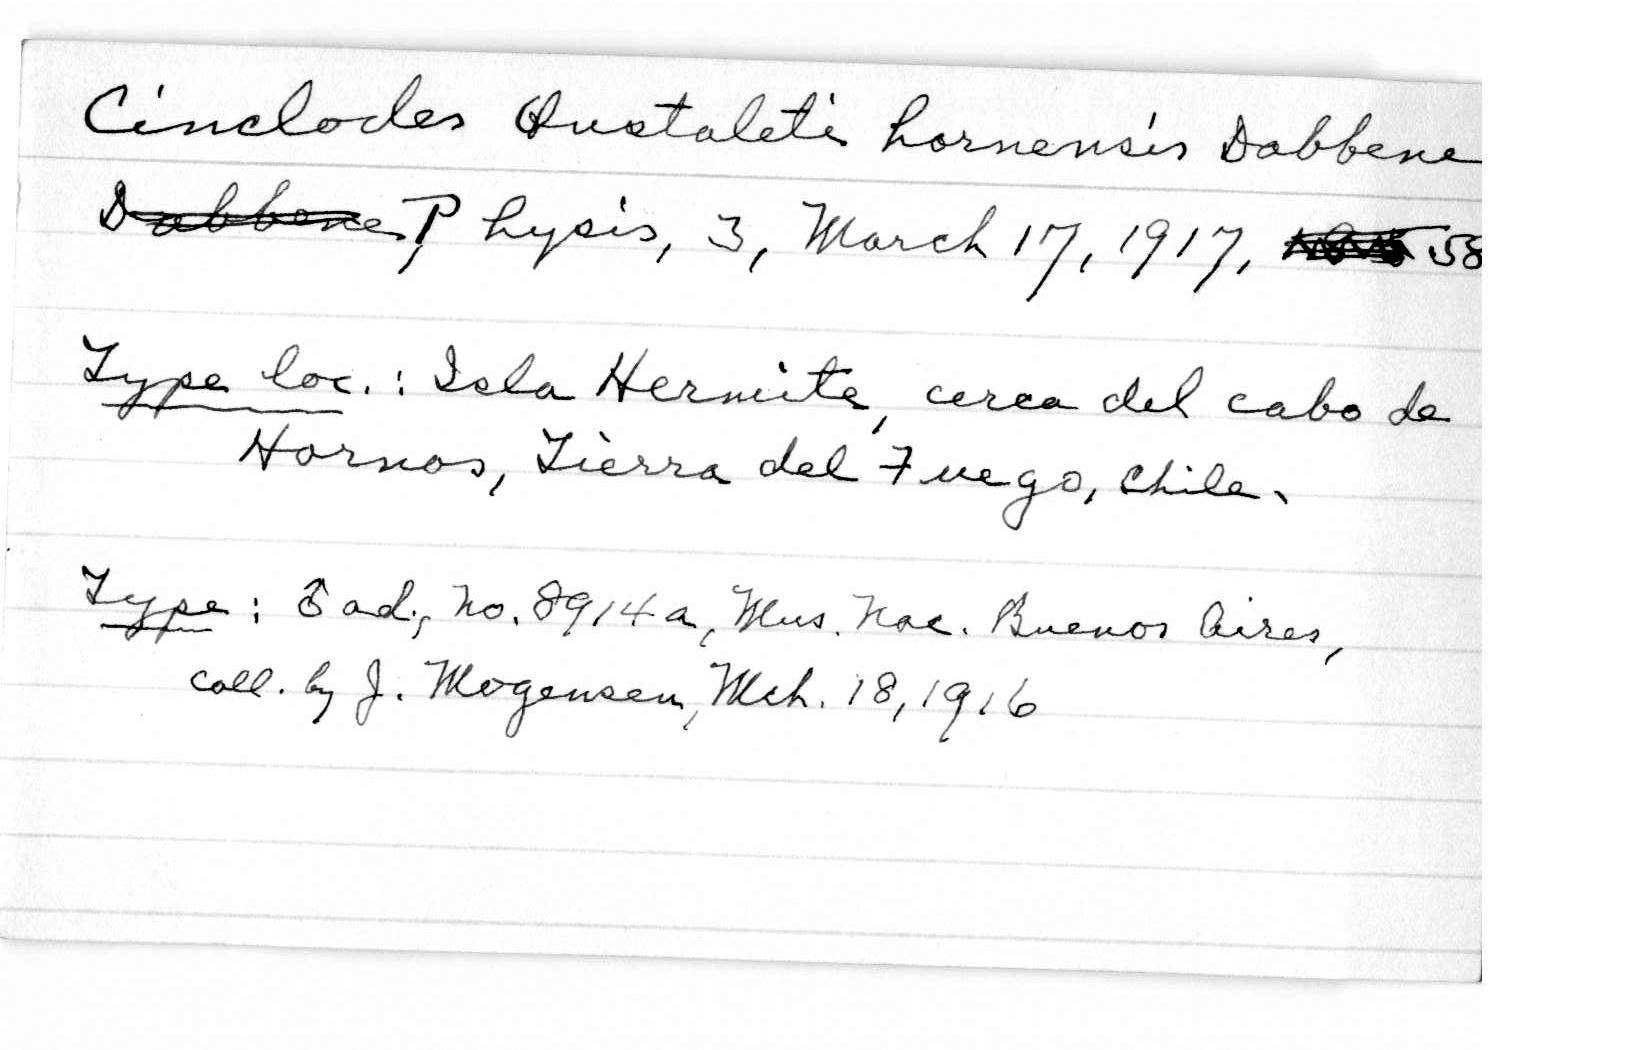 Cinclodes Oustaleti hornensis Dabbene
Dabbene, Physis, 3, March 17, 1917, 58
Type loc.: Isla Hermite, cerca del cabo de
Hornos, Tierra del Fuego, Chile.
Type: ♂ ad., No. 8914a, Mus. Nac. Buenos Aires,
coll. by J. Mogensen, Mch. 18, 1916